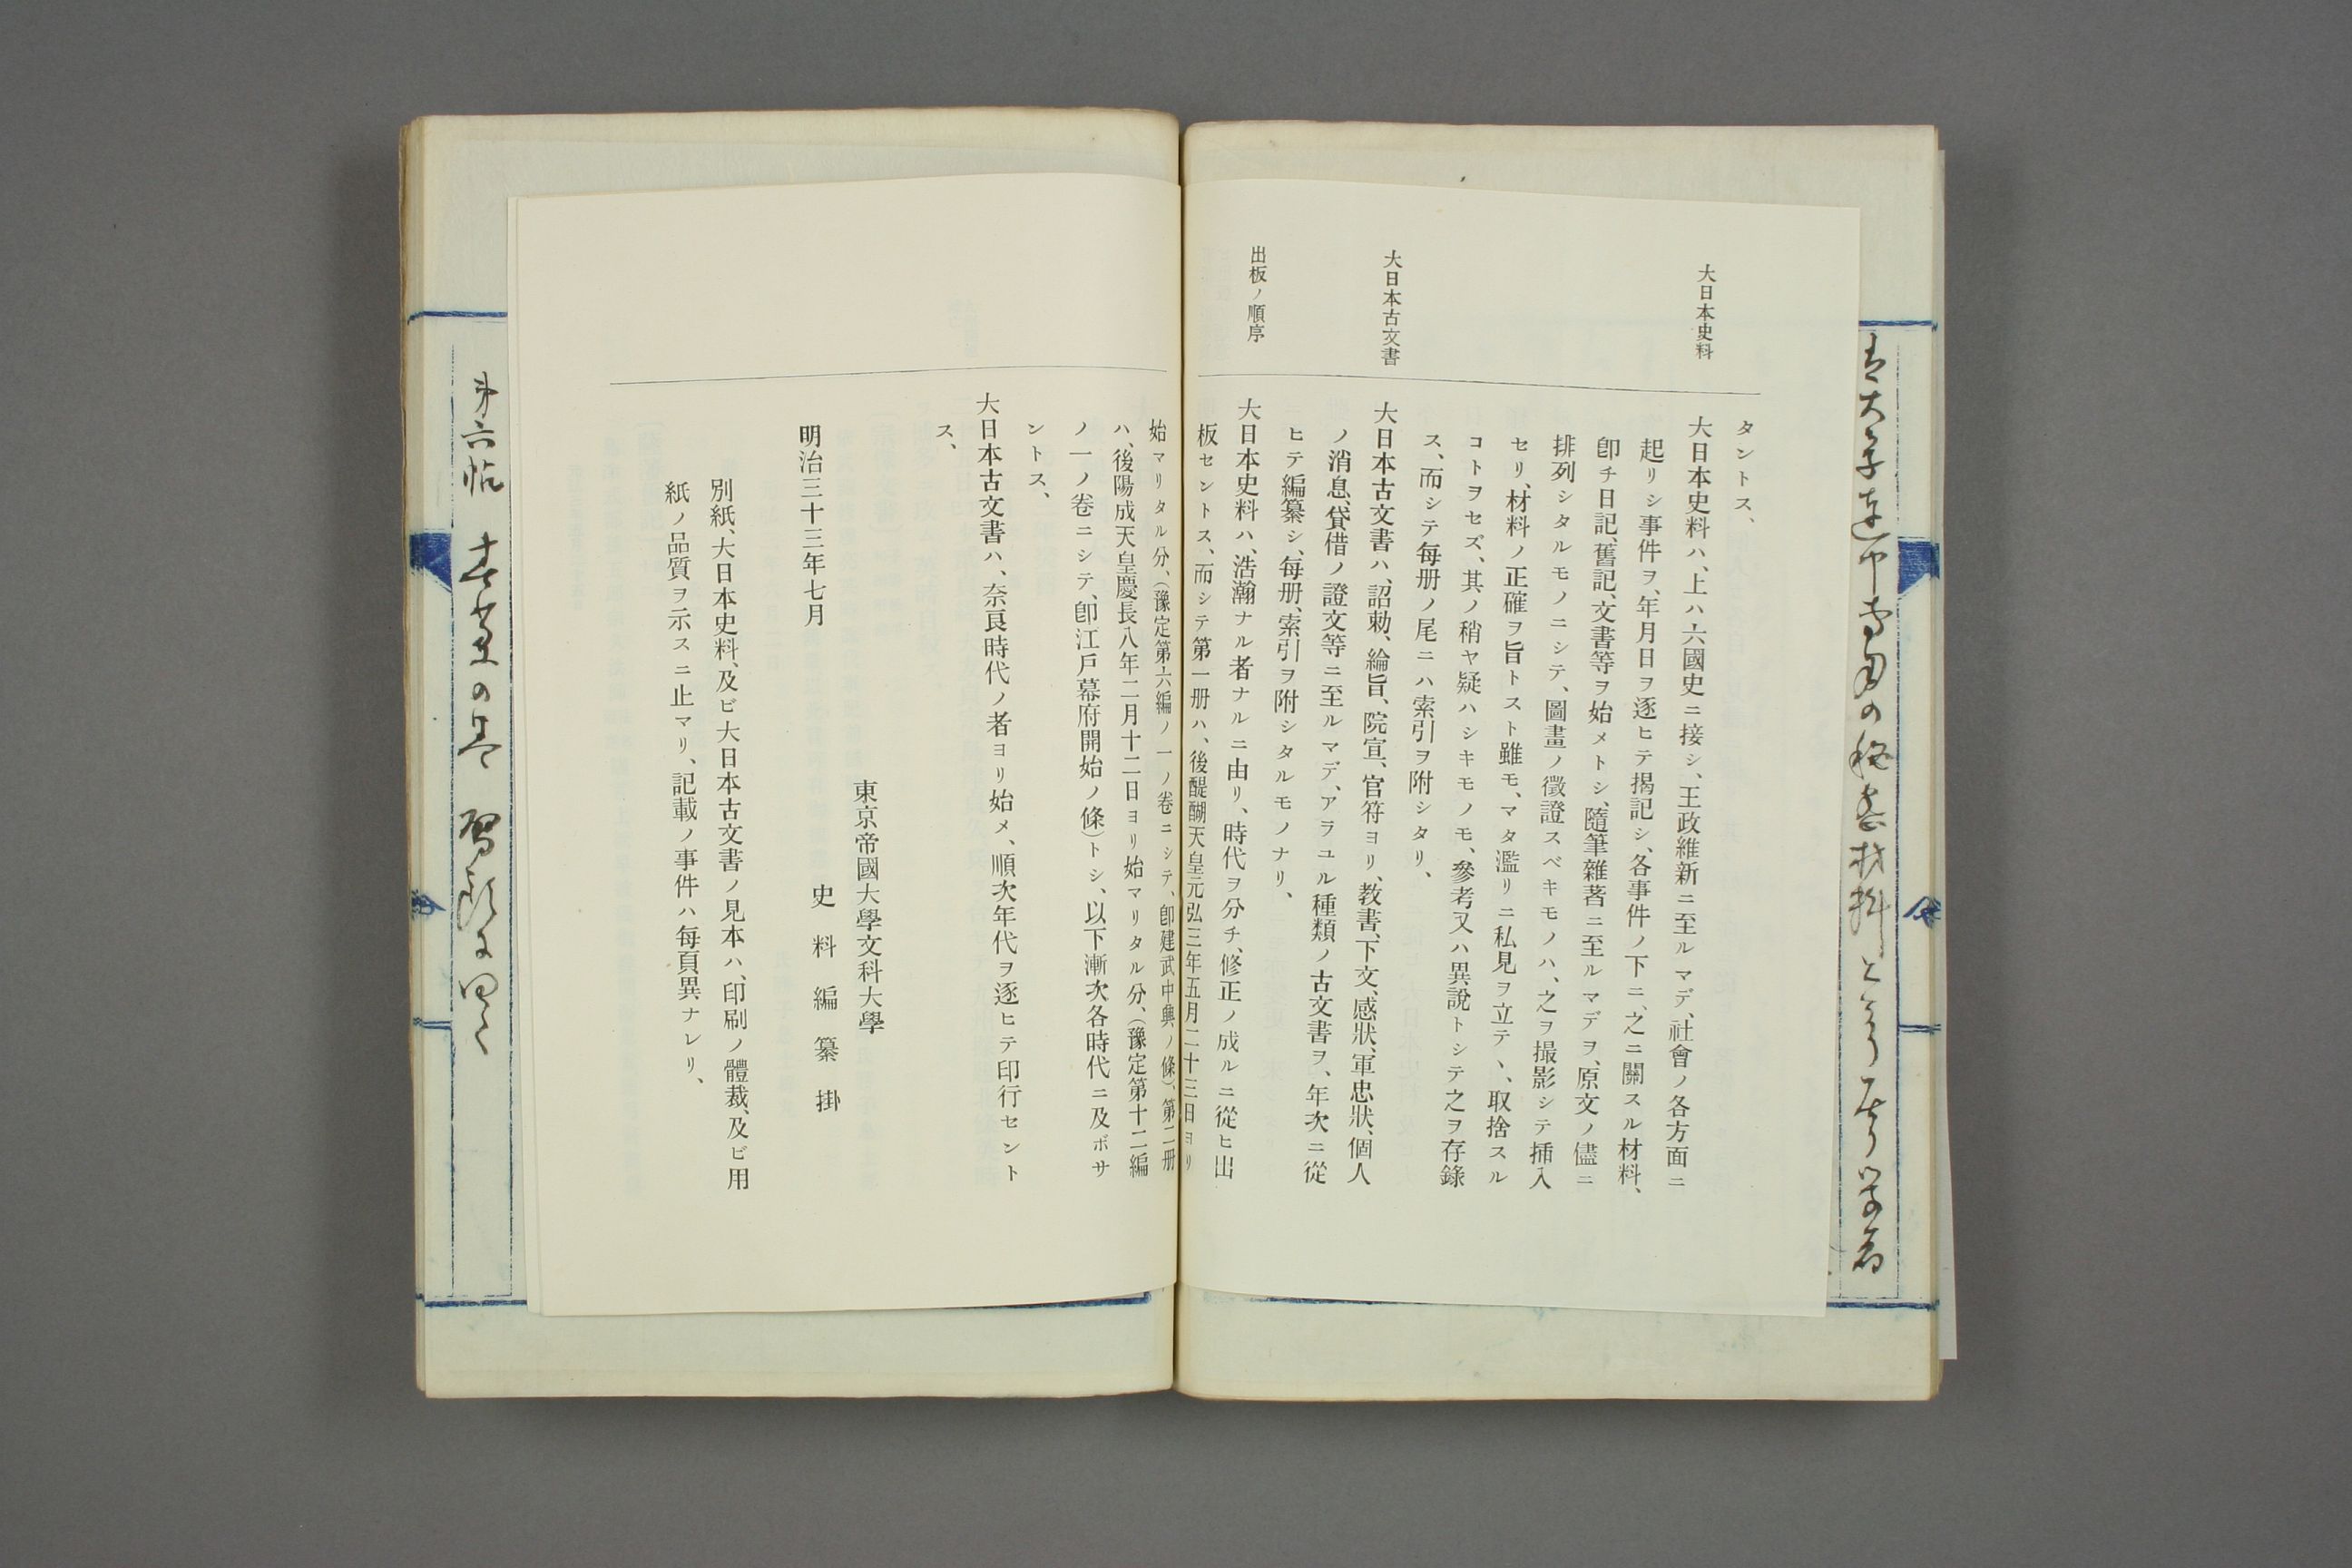 タントス、
大日本史料
大日本史料ハ、上ハ六國史ニ接シ、王政維新ニ至ルマデ、社會ノ各方面ニ
起リシ事件ヲ、年月日ヲ逐ヒテ揭記シ、各事件ノ下ニ、之ニ關スル材料、
卽チ日記、舊記、文書等ヲ始メトシ、隨筆雜著ニ至ルマデヲ、原文ノ儘ニ
排列シタルモノニシテ、圖畫ノ徵證スベキモノハ、之ヲ撮影シテ揷入
セリ、材料ノ正確ヲ旨トスト雖モ、マタ濫リニ私見ヲ立テヽ、取捨スル
コトヲセズ、其ノ稍ヤ疑ハシキモノモ、參考又ハ異說トシテ之ヲ存錄
ス、而シテ每册ノ尾ニハ索引ヲ附シタリ、
大日本古文書
大日本古文書ハ、詔勅、綸旨、院宣、官符ヨリ、教書、下文、感狀、軍忠狀、個人
ノ消息、貸借ノ證文等ニ至ルマデ、アラユル種類ノ古文書ヲ、年次ニ從
ヒテ編纂シ、每册、索引ヲ附シタルモノナリ、
出板ノ順序
大日本史料ハ、浩瀚ナル者ナルニ由リ、時代ヲ分チ、修正ノ成ルニ從ヒ出
板セントス、而シテ第一册ハ、後醍醐天皇元弘三年五月二十三日ヨリ
始マリタル分、(豫定第六編ノ一ノ卷ニシテ、卽建武中興ノ條)、第二册
ハ、後陽成天皇慶長八年二月十二日ヨリ始マリタル分、(豫定第十二編
ノ一ノ卷ニシテ、卽江戶幕府開始ノ條)トシ、以下漸次各時代ニ及ボサ
ントス、
大日本古文書ハ、奈良時代ノ者ヨリ始メ、順次年代ヲ逐ヒテ印行セント
ス、
東京帝國大學文科大學
史料編纂掛
明治三十三年七月
別紙、大日本史料、及ビ大日本古文書ノ見本ハ、印刷ノ體裁、及ビ用
紙ノ品質ヲ示スニ止マリ、記載ノ事件ハ每頁異ナレリ、